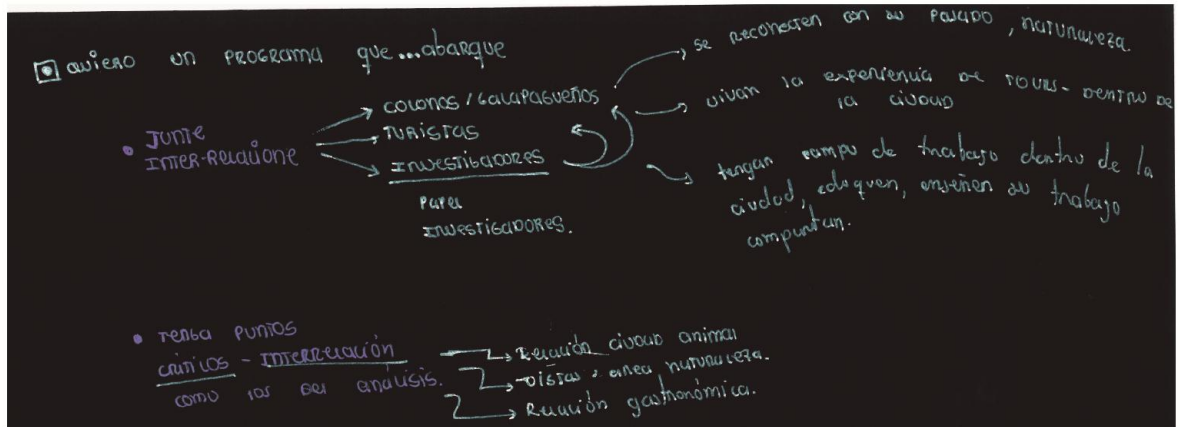 QUIERO UN PROGRAMA QUE...abarque
• JUNTE
INTER-RELACIONE
COLONOS / GALAPAGUEÑOS
TURISTAS
INVESTIGADORES
PARA
INVESTIGADORES.
se reconecten con su pasado, naturaleza.
vivan la experiencia de TOURS - DENTRO DE
la ciudad
tengan campo de trabajo dentro de la
ciudad, eduquen, enseñen su trabajo
compartan.
• TENGA PUNTOS
CRÍTICOS - INTERRELACIÓN
COMO los del análisis.
Relación ciudad animal
VISTAS área naturaleza.
Relación gastronómica.